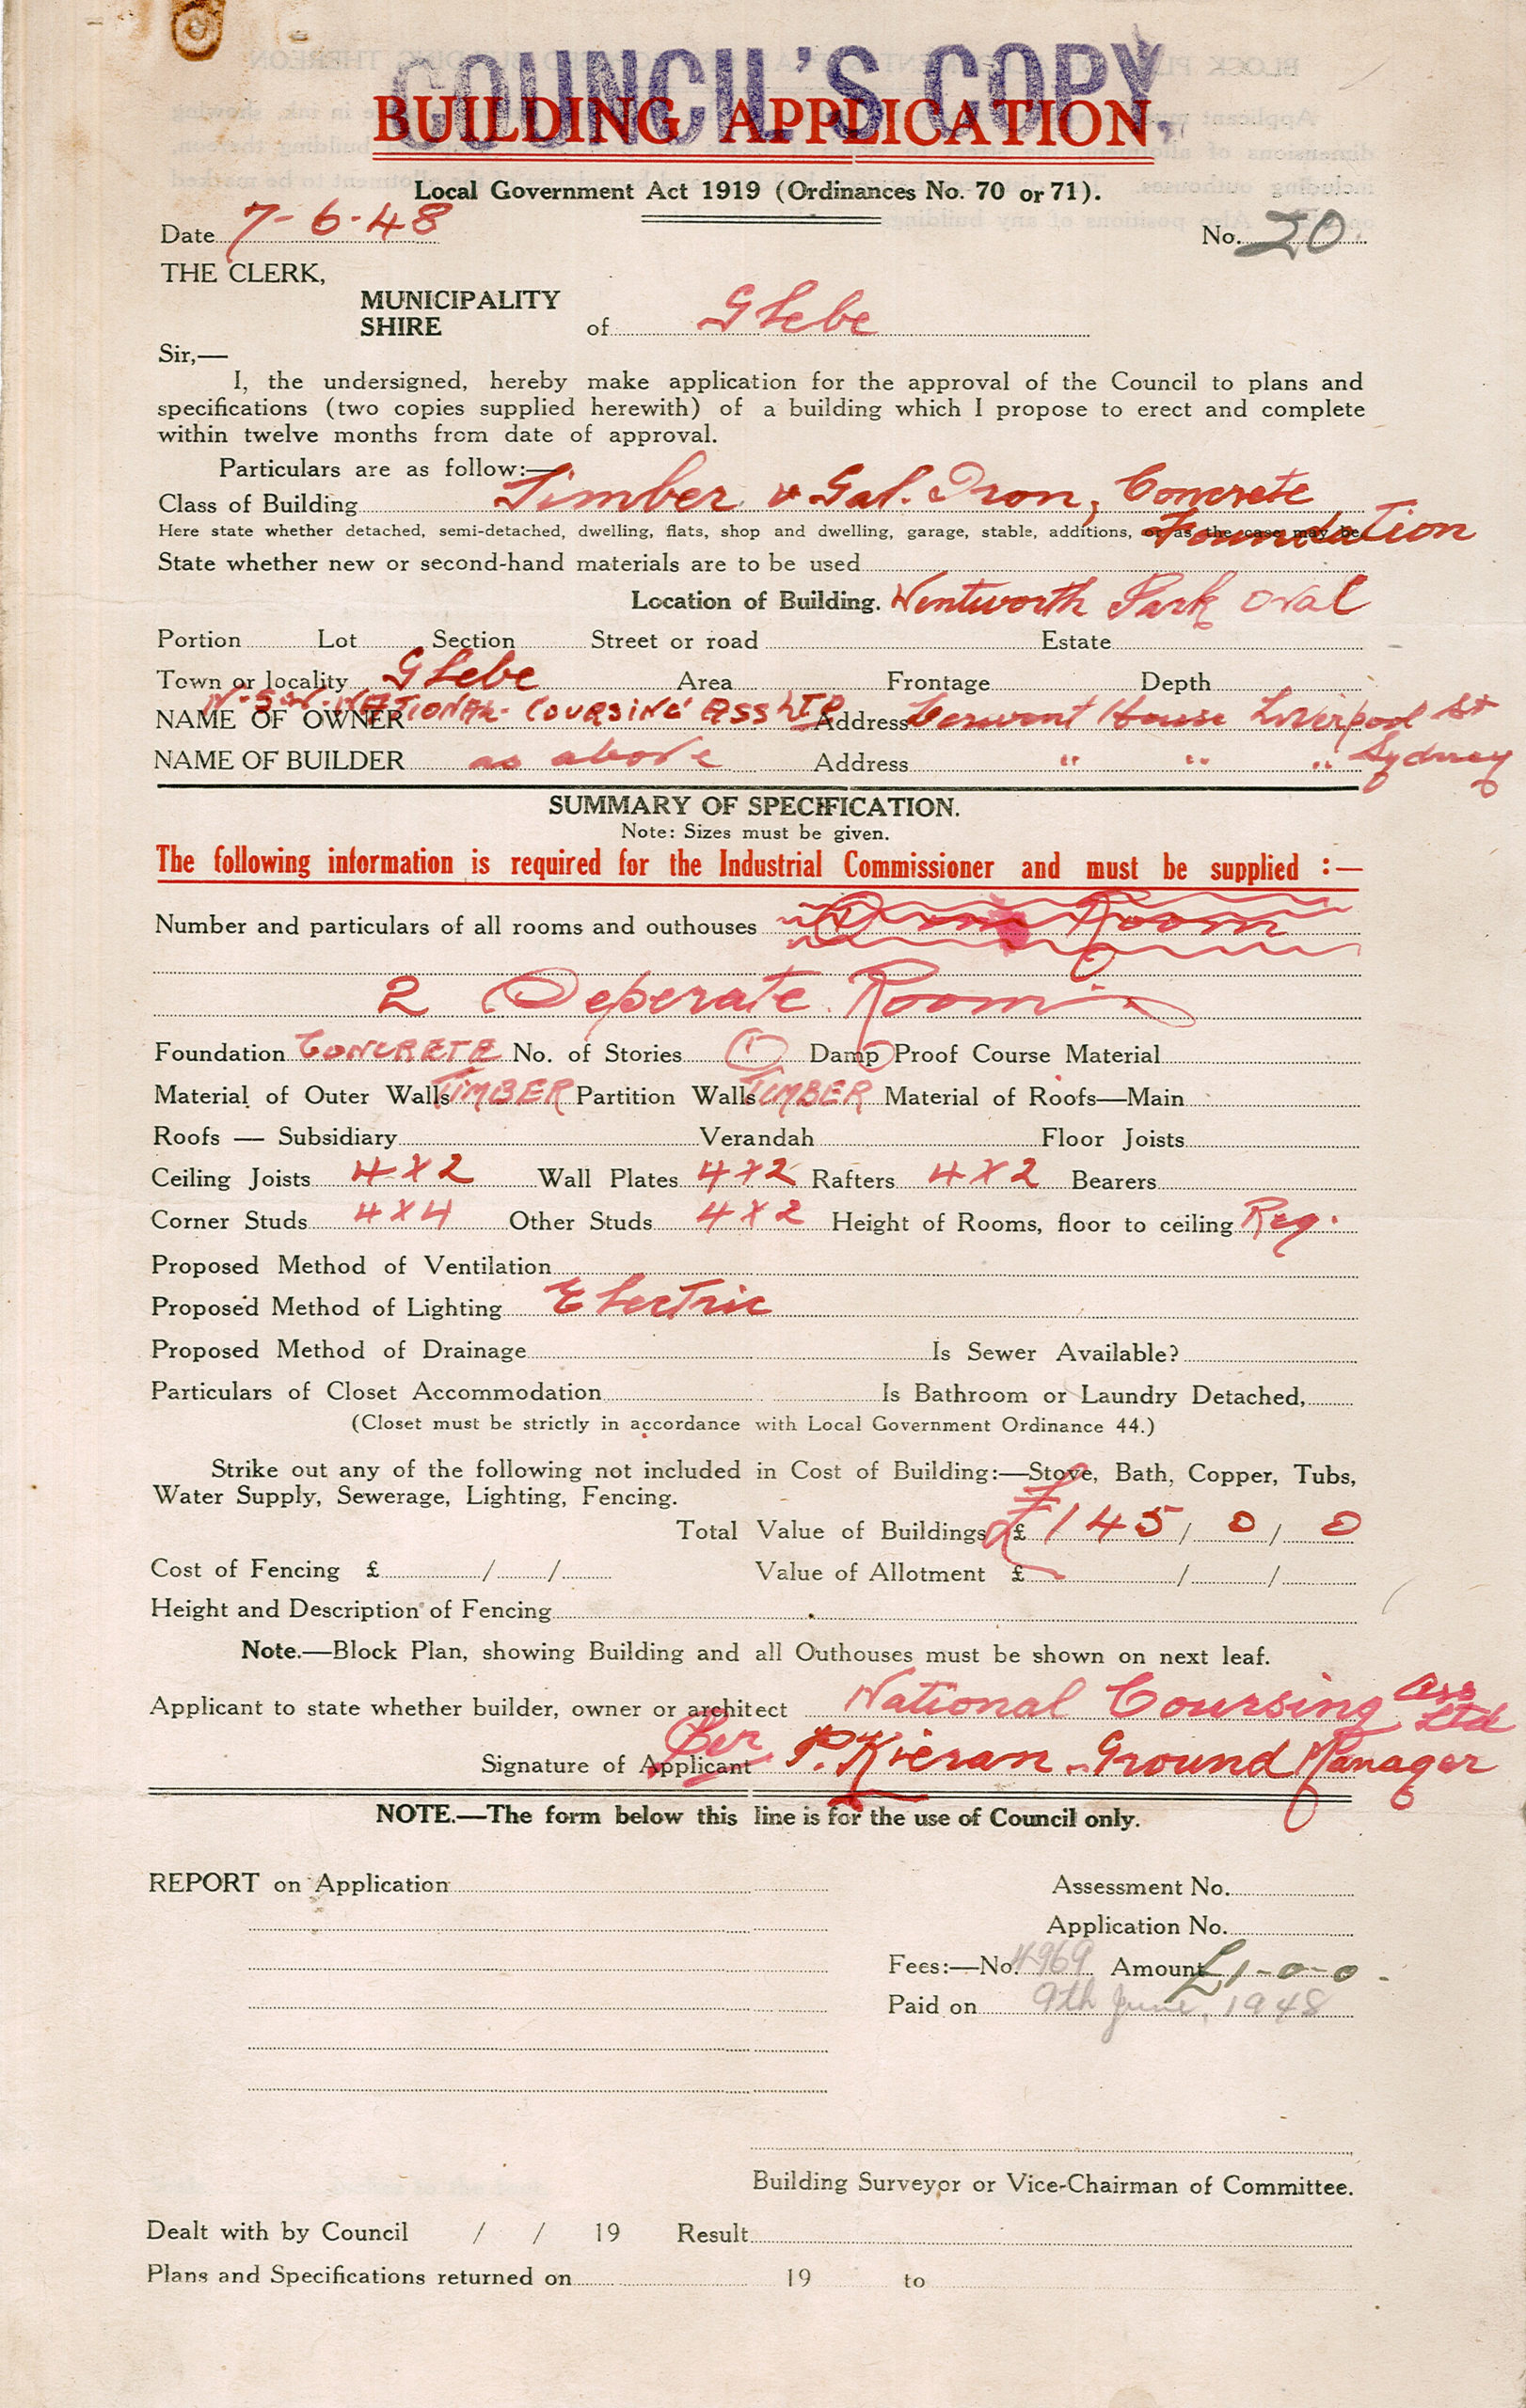 COUNCIL'S COPY
BUILDING APPLICATION,
Local Government Act 1919 (Ordinances No. 70 or 71).
Date 7-6-48 No. 20
THE CLERK,
MUNICIPALITY
SHIRE of Glebe
Sir,—
I, the undersigned, hereby make application for the approval of the Council to plans and
specifications (two copies supplied herewith) of a building which I propose to erect and complete
within twelve months from date of approval.
Particulars are as follow:—
Class of Building Timber & Gal. Iron, Concrete
Here state whether detached, semi-detached, dwelling, flats, shop and dwelling, garage, stable, additions, or as the case may be. Foundation
State whether new or second-hand materials are to be used
Location of Building. Wentworth Park Oval
Portion Lot Section Street or road Estate
Town or locality Glebe Area Frontage Depth
NAME OF OWNER N.S.W. NATIONAL COURSING ASS LTD Address Derwent House Liverpool St
NAME OF BUILDER as above Address " " " Sydney
SUMMARY OF SPECIFICATION.
Note: Sizes must be given.
The following information is required for the Industrial Commissioner and must be supplied :—
Number and particulars of all rooms and outhouses Room
2 Seperate Rooms
Foundation CONCRETE No. of Stories 1 Damp Proof Course Material
Material of Outer Walls TIMBER Partition Walls TIMBER Material of Roofs—Main
Roofs — Subsidiary Verandah Floor Joists
Ceiling Joists 4 X 2 Wall Plates 4 X 2 Rafters 4 X 2 Bearers
Corner Studs 4 X 4 Other Studs 4 X 2 Height of Rooms, floor to ceiling Reg.
Proposed Method of Ventilation
Proposed Method of Lighting Electric
Proposed Method of Drainage Is Sewer Available?
Particulars of Closet Accommodation Is Bathroom or Laundry Detached,
(Closet must be strictly in accordance with Local Government Ordinance 44.)
Strike out any of the following not included in Cost of Building:—Stove, Bath, Copper, Tubs,
Water Supply, Sewerage, Lighting, Fencing.
Total Value of Buildings £ £ 145 / 0 / 0
Cost of Fencing £ / / Value of Allotment £ / /
Height and Description of Fencing
Note.—Block Plan, showing Building and all Outhouses must be shown on next leaf.
Applicant to state whether builder, owner or architect National Coursing Ass Ltd
Signature of Applicant Per P. Kieran - Ground Manager
NOTE.—The form below this line is for the use of Council only.
REPORT on Application Assessment No.
Application No.
Fees:—No. 4969 Amount £1-0-0
Paid on 9th June, 1948
Building Surveyor or Vice-Chairman of Committee.
Dealt with by Council / / 19 Result
Plans and Specifications returned on 19 to